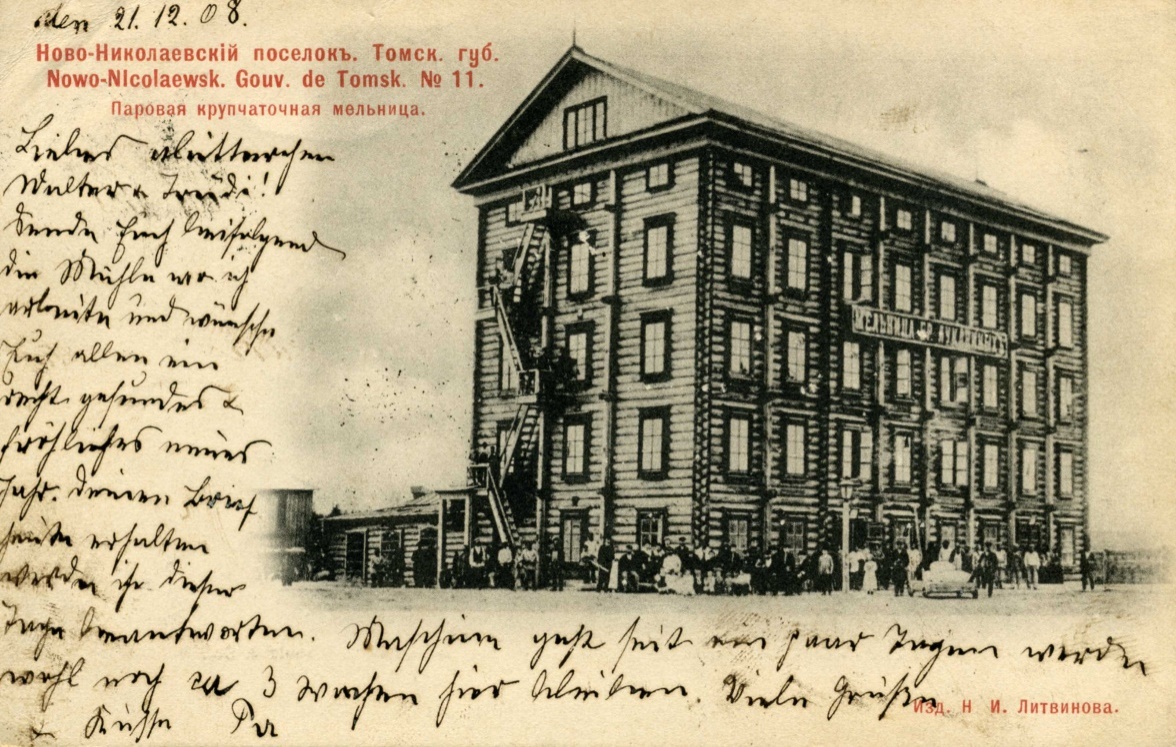 den 21.12.08.
Ново-Николаевскій поселокъ. Томск. губ.
Nowo-NIcolaewsk. Gouv. de Tomsk. № 11.
Паровая крупчаточная мельница.
Liebes
Walter & Trudi!
Sende Euch beifolgend
die Mühle wo ich
arbeite und wünsche
Euch allen ein
recht gesundes &
fröhliches neues
Jahr. Deinen Brief
heute erhalten
werde ihn dieser
Tage beantworten. Maschine geht seit ein paar Tagen werde
wohl noch ca 3 Wochen hier bleiben. Viele Grüße
& Küsse
МЕЛЬНИЦА
Изд. Н И. Литвинова.